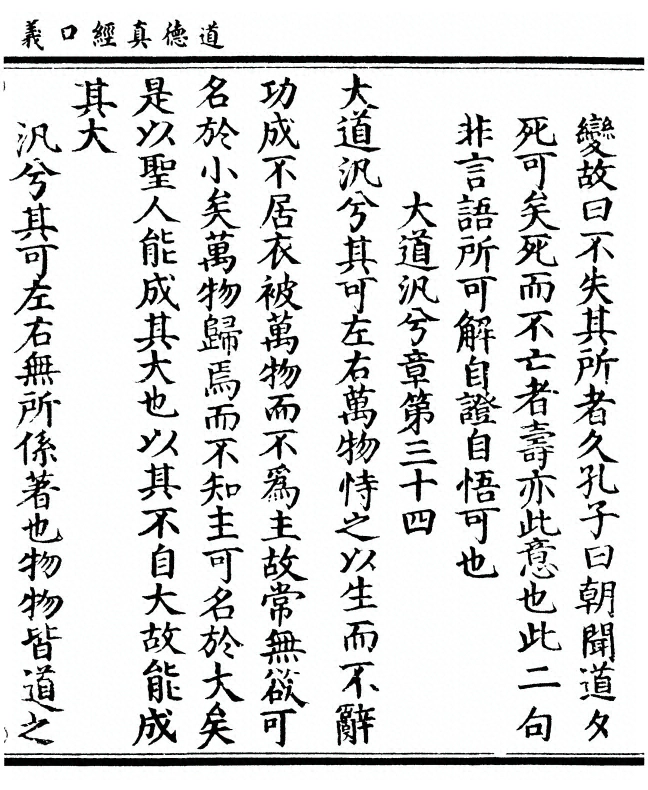 道德真經口義
變故曰不失其所者久孔子曰朝聞道夕
死可矣死而不亡者壽亦此意也此二句
非言語所可解自證自悟可也
大道汎兮章第三十四
大道汎兮其可左右萬物恃之以生而不辭
功成不居衣被萬物而不爲主故常無欲可
名於小矣萬物歸焉而不知主可名於大矣
是以聖人能成其大也以其不自大故能成
其大
汎兮其可左右無所係著也物物皆道之